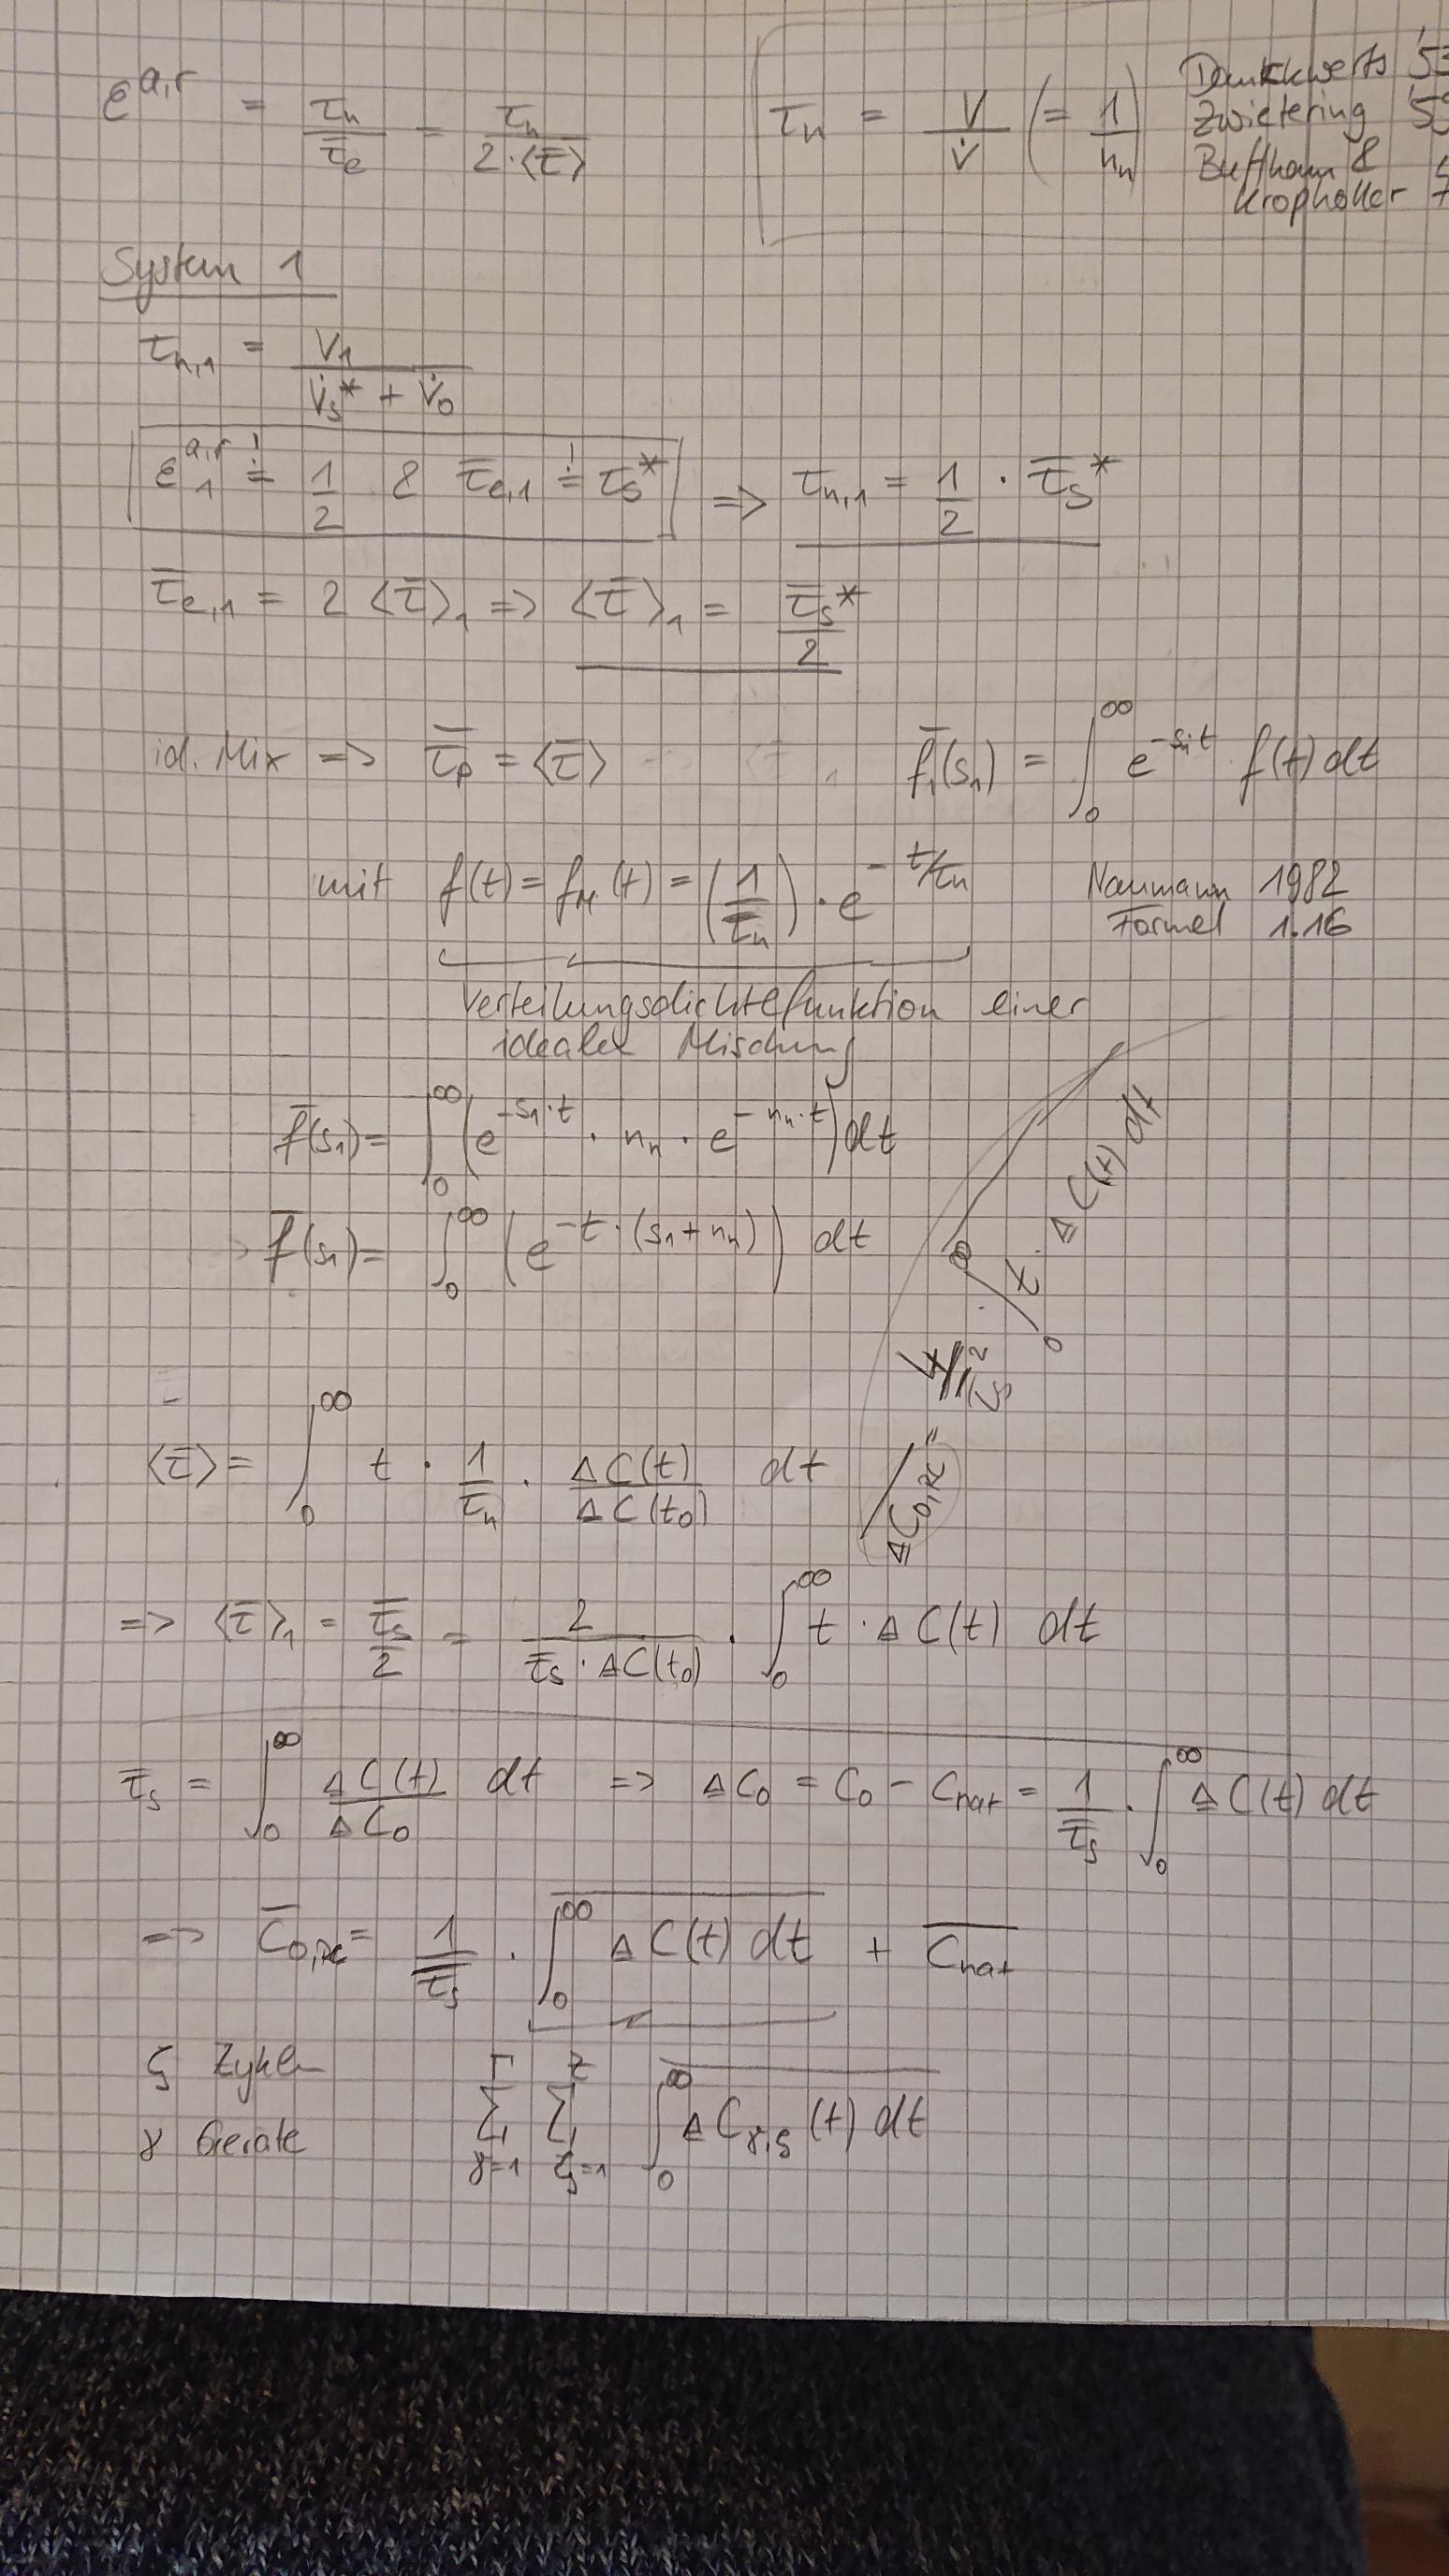 ε^{a,r} = τ_n / τ̄_e = τ_n / (2·⟨τ̄⟩)
τ_n = V / V̇ (= 1 / n_n)
Danckwerts '53
Zwietering '59
Buffham &
Kropholler
System 1
τ_{n,1} = V_1 / (V̇_S* + V̇_0)
[ε_1^{a,r} =! 1/2 & τ̄_{e,1} =! τ̄_S*] => τ_{n,1} = 1/2 · τ̄_S*
τ̄_{e,1} = 2 ⟨τ̄⟩_1 => ⟨τ̄⟩_1 = τ̄_S* / 2
id. Mix => τ̄_P = ⟨τ̄⟩
f̄_1(s_1) = ∫_0^∞ e^{-s_1·t} f(t) dt
mit f(t) = f_M(t) = (1 / τ_n) · e^{-t/τ_n}
Naumann 1982
Formel 1.16
Verteilungsdichtefunktion einer
idealen Mischung
f̄(s_1) = ∫_0^∞ (e^{-s_1·t} · n_n · e^{-n_n·t}) dt
f̄(s_1) = ∫_0^∞ (e^{-t·(s_1+n_n)}) dt
ΔC_{0,rc} = 4/τ̄_S² ∫_0^∞ t · ΔC(t) dt
⟨τ̄⟩ = ∫_0^∞ t · 1/τ_n · ΔC(t) / ΔC(t_0) dt
=> ⟨τ̄⟩_1 = τ̄_S / 2 = 2 / (τ̄_S · ΔC(t_0)) · ∫_0^∞ t · ΔC(t) dt
τ̄_S = ∫_0^∞ ΔC(t) / ΔC_0 dt => ΔC_0 = C_0 - C_nat = 1/τ̄_S · ∫_0^∞ ΔC(t) dt
=> C̄_{0,rc} = 1/τ̄_S · ∫_0^∞ ΔC(t) dt + C̄_nat
ζ Zyklen
γ Geräte
∑_{γ=1}^Γ ∑_{ζ=1}^Z ∫_0^∞ ΔC_{γ,ζ}(t) dt